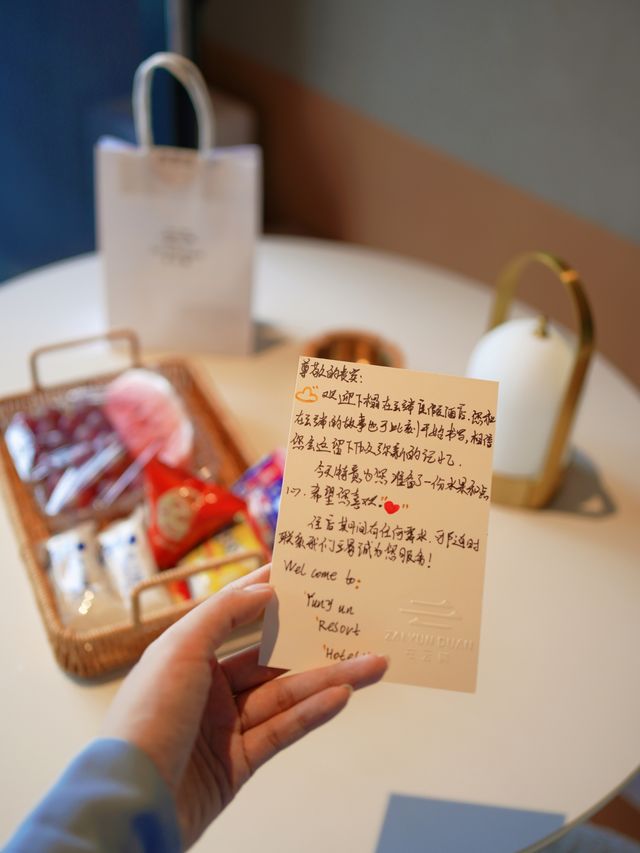 尊敬的贵宾:
欢迎下榻在云端度假酒店,您和
在云端的故事也于此刻开始书写,相信
您会这留下 弥新的记忆.
今天特意为您准备了一份水果和点
心.希望您喜欢."❤"
住店期间有任何需求,可随时
联系我们,竭诚为您服务!
Wel come to:
Yun yun
Resort
Hotel
ZAI YUN DUAN
在云端